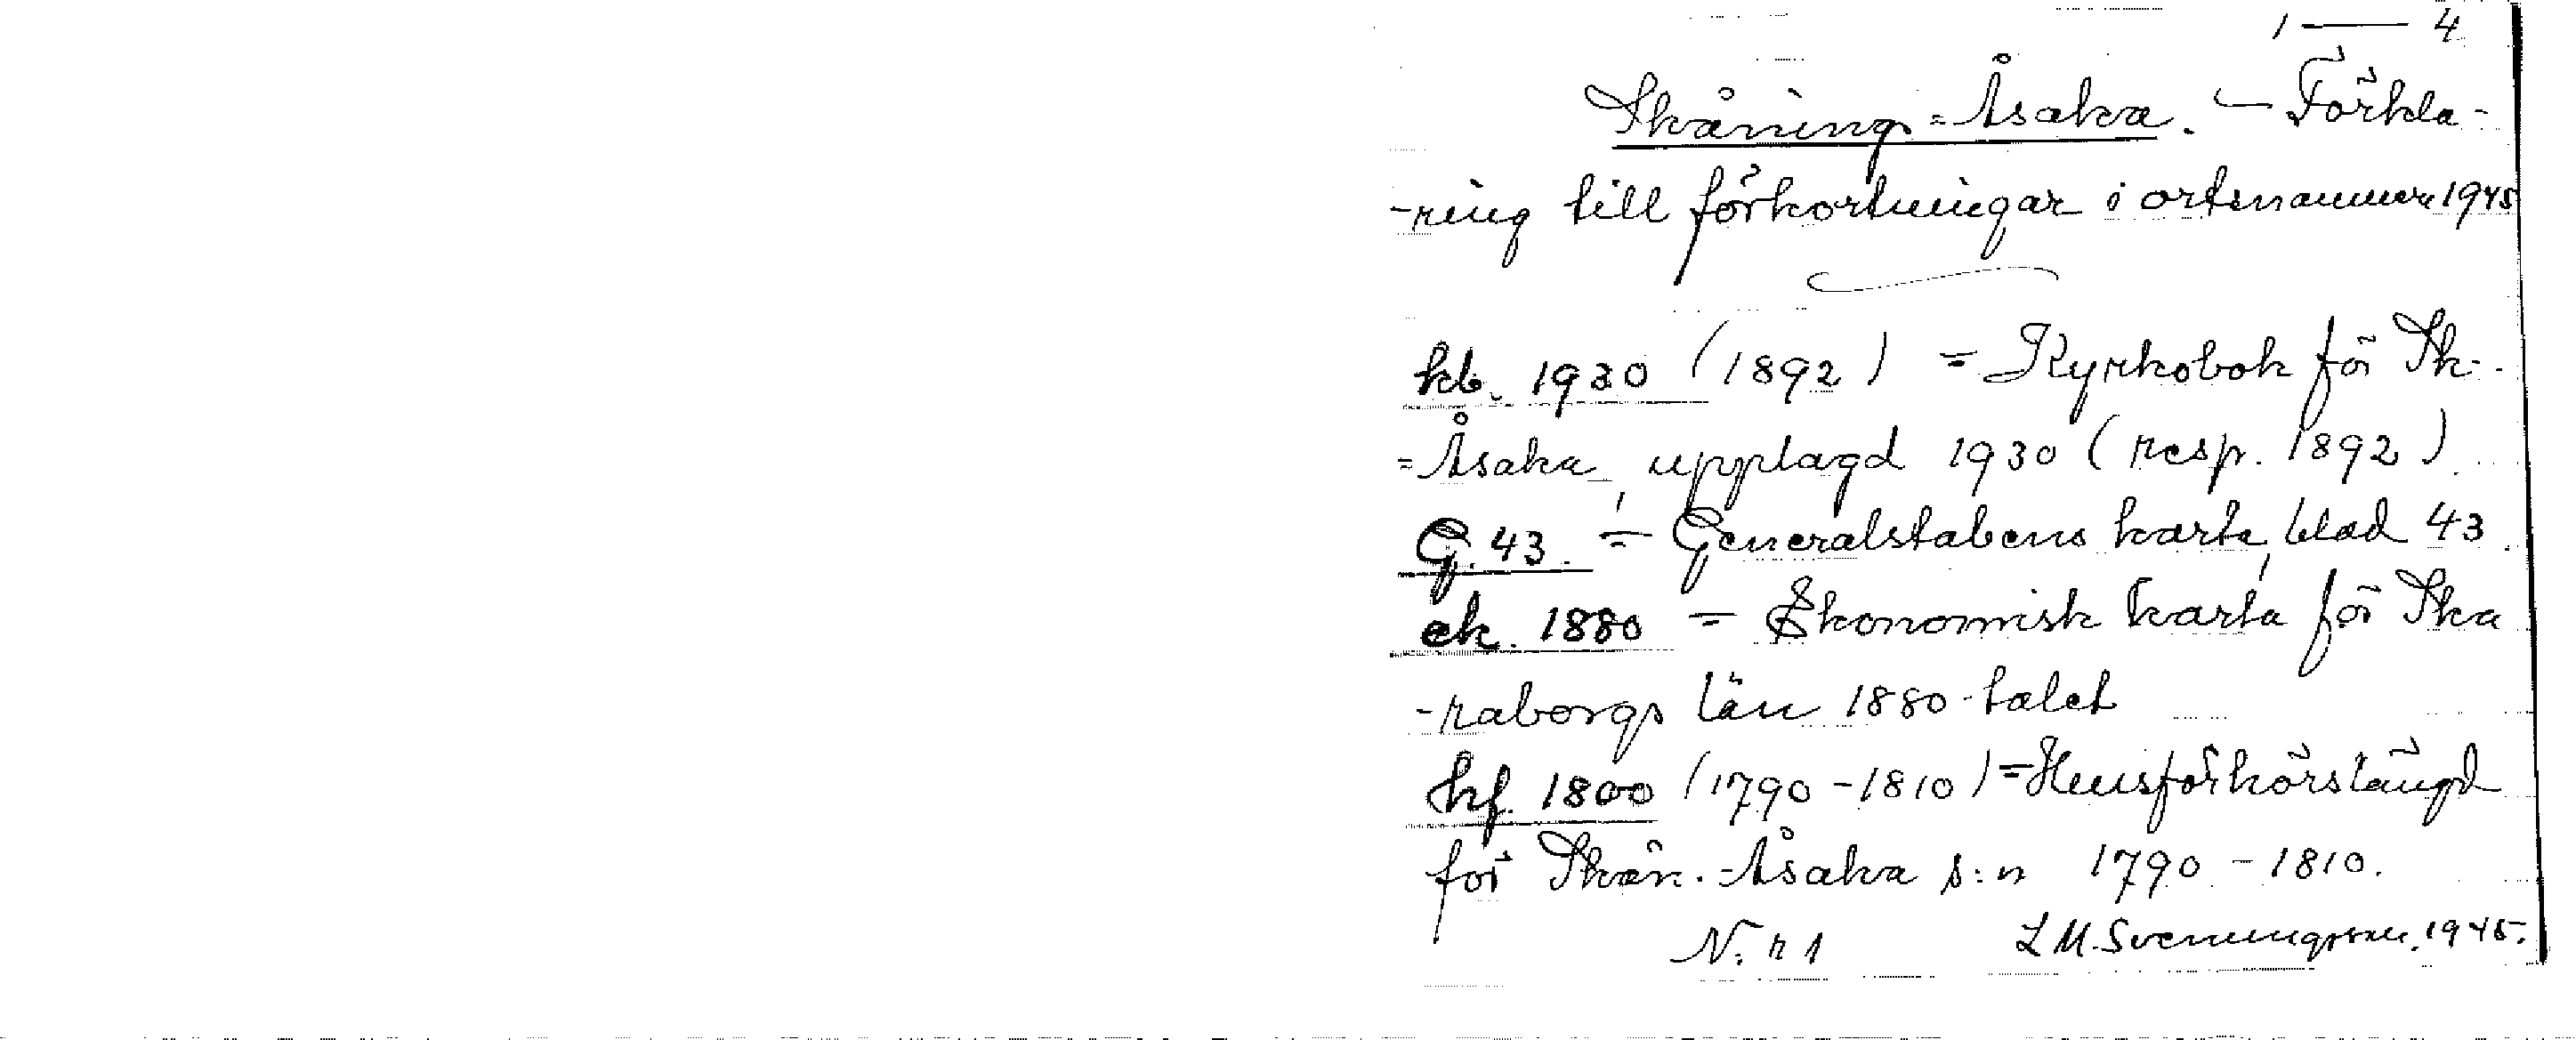 1 — 4
Skånings-Åsaka. — Förkla-
-ring till förkortningar i ortsnamnen 1945
kb. 1930 (1892) = Kyrkobok för Sk.
=Åsaka, upplagd 1930 (resp. 1892).
G. 43 = Generalstabens karta, blad 43.
ek. 1880 = Ekonomisk karta för Ska
-raborgs län 1880-talet
hf. 1800 (1790-1810) = Husförhörslängd
för Skån.-Åsaka s:n 1790-1810.
N:r 1 L M. Svenungsson. 1945.